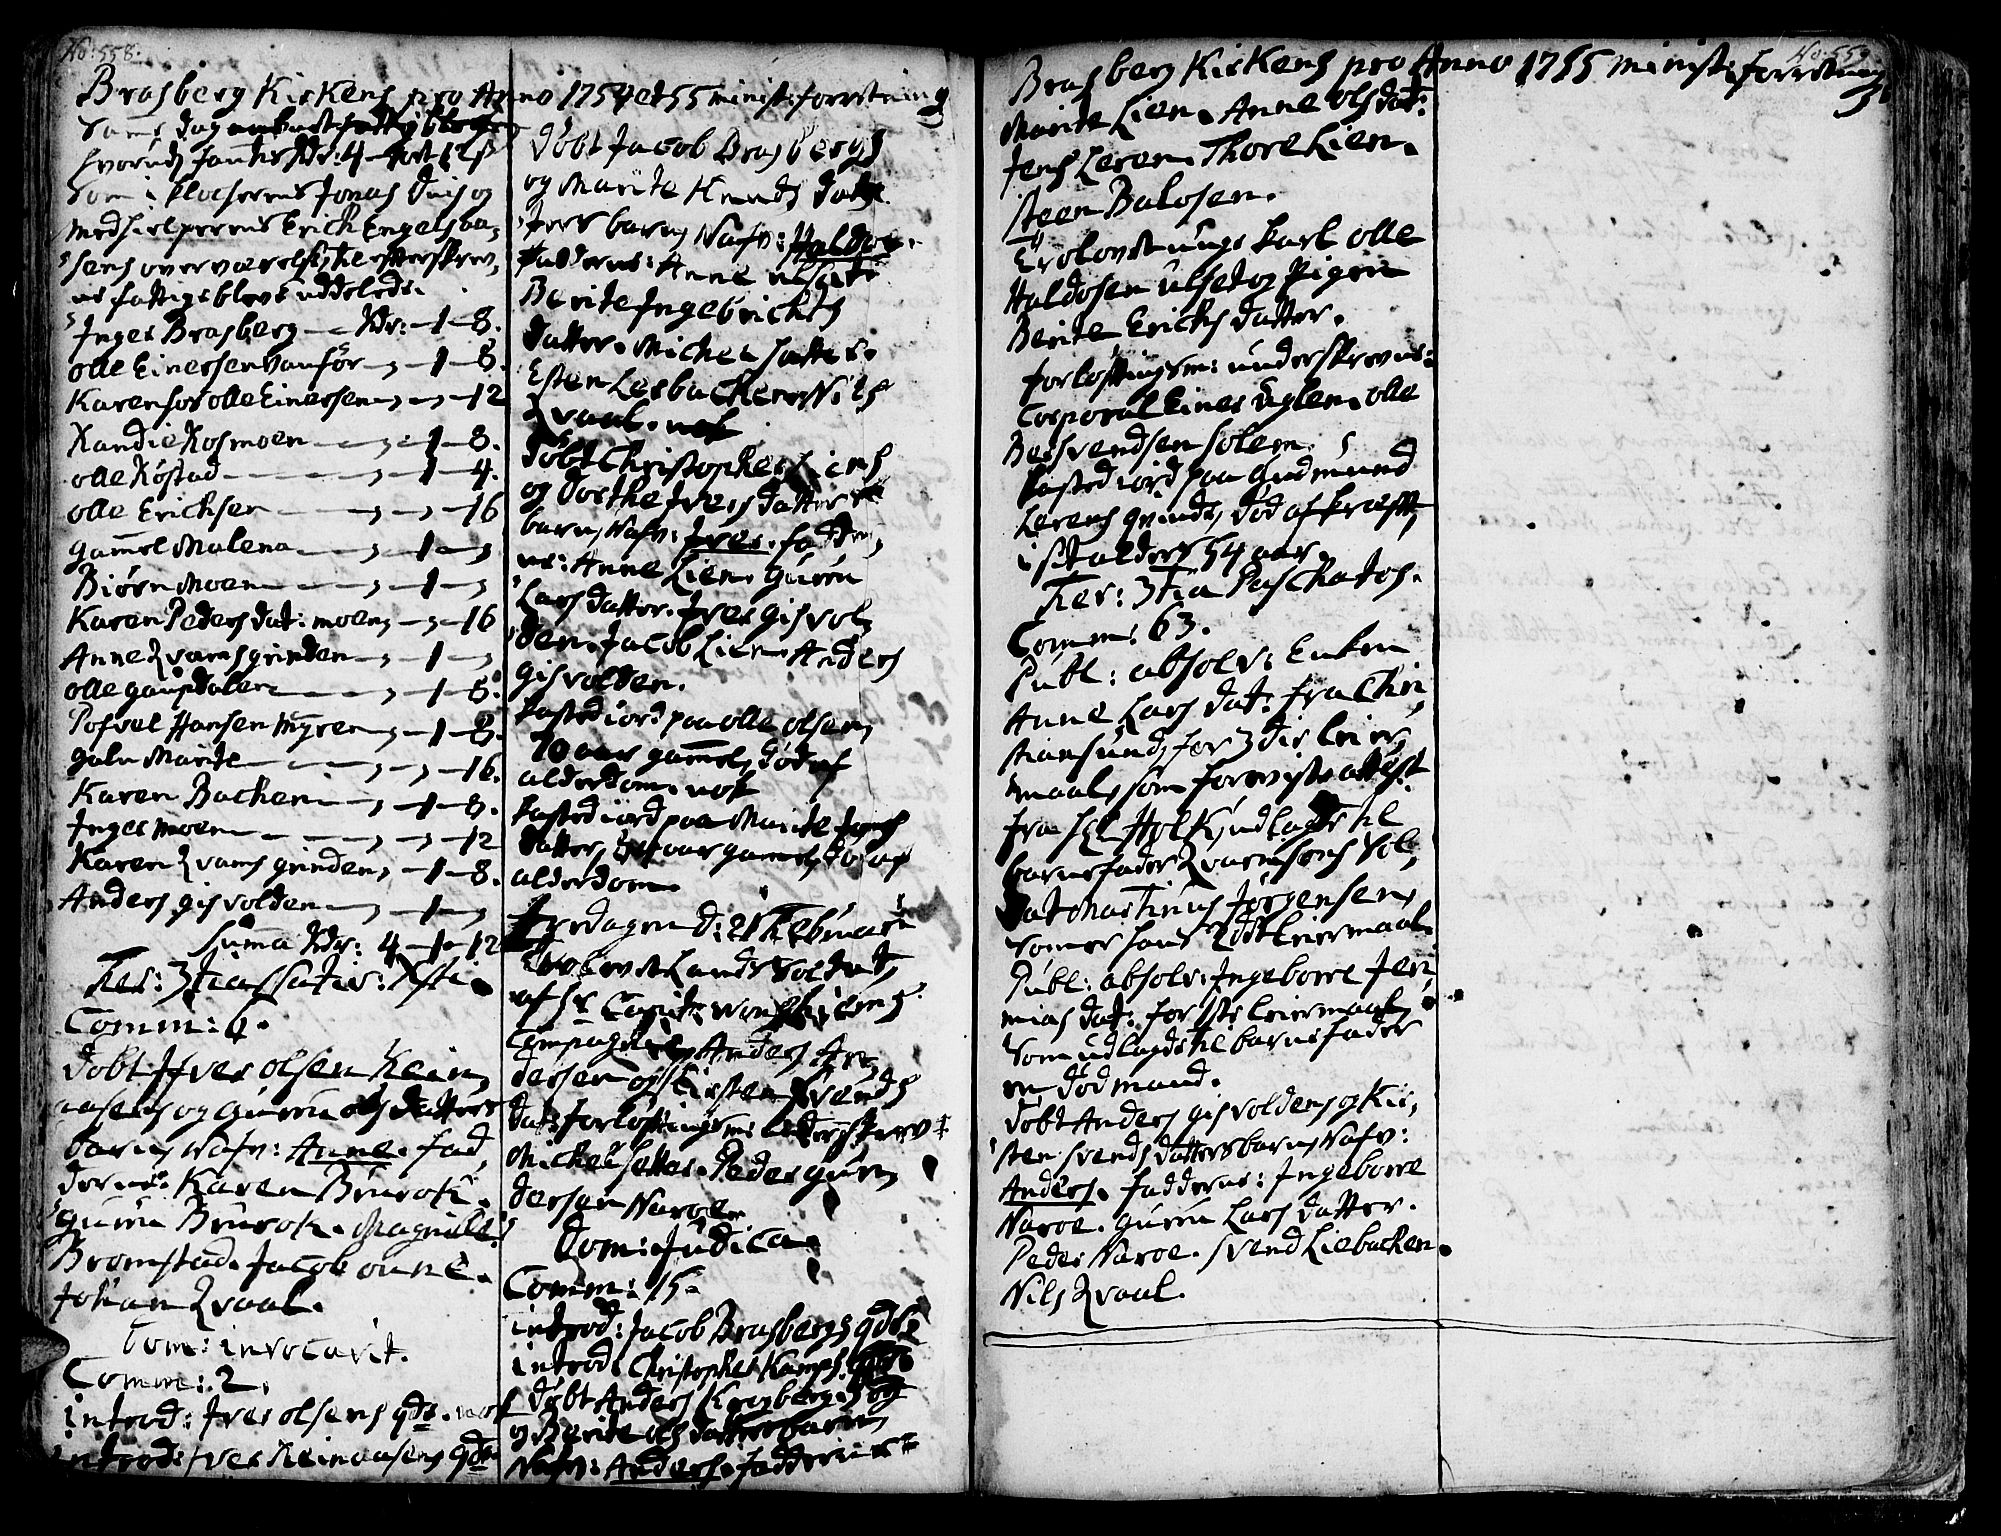 No: 558.
Brasberg Kirkens pro Anno 1754 et 55 minist: forretning
Sam: dag
hvorudj fantes Rdr: 4 - ort 12 s
Som i klocherens Jonas Duis og
medhielperens Erich Engelsba,
sens overværelse, til efterskrev,
ne fattige blev uddeelede.
Inger Brasberg — Rdr: -1-8.
olle Einersen Vanfór — , -1-8.
Karen for olle Einersen , — , -12
Randie Rosmoen — , -1-8.
olle Róstad — , -1-4.
olle Erichsen — , — , -16
gamel Malena — , -1- ,
Biórn Moen — , -1- ,
Karen Peders dat: moen , — , -16
Anne Qvams grinden — , -1- ,
olle gaupdalen — , -1-8.
Pofvel Hansen Myren , -1-8.
galn Marite — , — , -16.
Karen Bachen — , -1-8.
Inger moen — , — , -12
Karen Qvams grinden , -1-8.
Anders gisvolden — , -1- ,
Suma Rdr: 4-1-12
Fer: 3tia Nativ: Xsti.
Comm: 6.
dóbt Iver olsen Rein,
aasens og Guru ols datters
barn, Nafn: Anne. fad,
derne: Karen Brurok.
guru Brurok. Magnille
Bromstad. Jacob
Johan Qvaal.
Dom: invocavit.
Comm: 2.
introd: Iver olsens qde. nok
introd: Iver Reinaasens qde
dóbt Jacob Brasbergs
og Marite Knuds datt
ters barn, Nafn: Haldor.
fadderne: Anne ulset
Berite Ingebrichts
datter. Michel sætter.
Esten Lerbachen. Nils
Qvaal. nok
dóbt Christopher Liens
og Dorthe Ivers datters
barn, Nafn: Iver. fadder,
ne: Anne Lien. guru
Lars datter. Iver gisvol,
den. Jacob Lien. Anders
gisvolden.
kasted iord paa olle olsen,
70 aar gamel, dód af
alderdom. nok
kasted iord paa Marite Jons
datter, aar gamel, dó af
alderdom.
fredagen d: 21 Februari
Trolovet Lands Soldat,
af Hr Capit:
Compagnie, Anders An,
dersen og Kirsten Svends
dat: forlofningsm: underskrev:
Michel setter. Peder gun,
dersen Naroe.
Dom: Judica.
Comm: 15.
introd: Jacob Brasbergs qde,
introd: Christopher Kamps. qde
dóbt Anders Krogbergs
og Berite ols datters barn,
Nafn: Anders. fadderne
No: 559.
Brasberg Kirkens pro Anno 1755 minist: forretning
Marite Lien. Anne ols dat:
Jens Leren. Thore Lien.
steen Balosen.
Trolovet unge karl olle
Haldosen ulset og Pigen
Berite Erichs datter.
forlofningsm: underskrevne:
Corporal Einer uglen. olle
Bersvendsen solem.
kasted iord paa Gudmund
Lerens grinde, dód af kræft,
i sit alders 54 aar.
Fer: 3tia Paschatos.
Comm: 63.
Publ: absolv: Enken
Anne Lars dat: fra Chri,
stiansund, for 3die leier,
maal, som foreviste attest
fra Hr. Holk, udlagde til
barnefader Qvernesens Sol,
dat Martinus Jórgensen,
som er hans 2det leiermaal.
Publ: absolv: Ingeborre Jere
mias dat: for 1ste leiermaal,
som udlagde til barnefader
en dód mand.
dóbt Anders gisvoldens og Kir,
sten svends datters barn, Nafn:
Anders. fadderne: Ingeborre
Naroe. Guru Lars datter.
Peder Naroe. svend Liebachen.
Nils Qvaal.